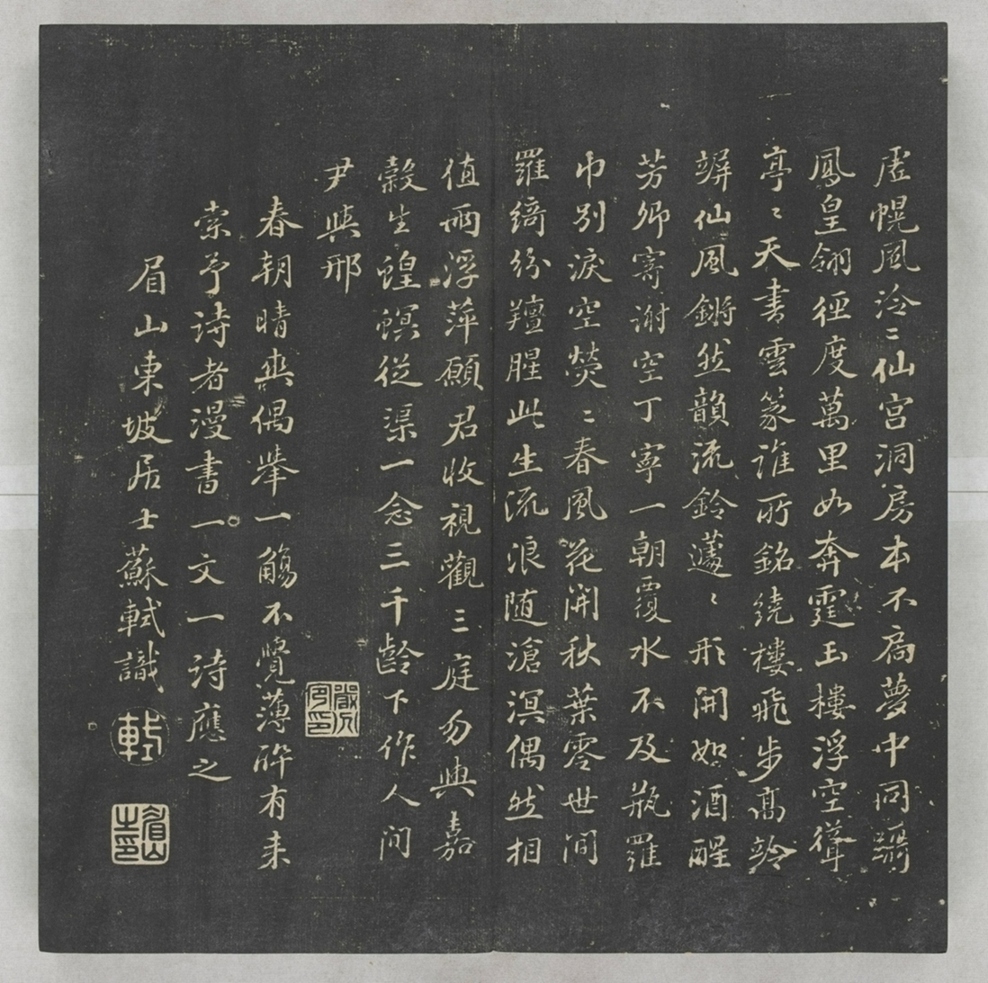 虛幌風泠〻仙宮洞房本不扃夢中同躡
鳳皇翎徑度萬里如奔霆玉樓浮空聳
亭〻天書雲篆誰所銘繞樓飛步高竛
竮仙風鏘然韻流鈴蘧〻形開如酒醒
芳卿寄謝空丁寧一朝覆水不及瓶羅
巾別淚空熒〻春風花開秋葉零世間
羅綺紛羶腥此生流浪随滄溟偶然相
值兩浮萍願君收視觀三庭勿與嘉
穀生蝗螟從渠一念三千齡下作人間
尹與邢
春朝晴爽偶舉一觴不覺薄醉有来
索予詩者漫書一文一詩應之
眉山東坡居士蘇軾識
軾
眉山之印